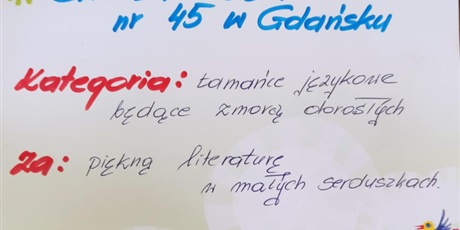 nr 45 w Gdańsku
Kategoria: łamańce językowe
będące zmorą dorosłych
Za: piękną literaturę
w małych serduszkach.